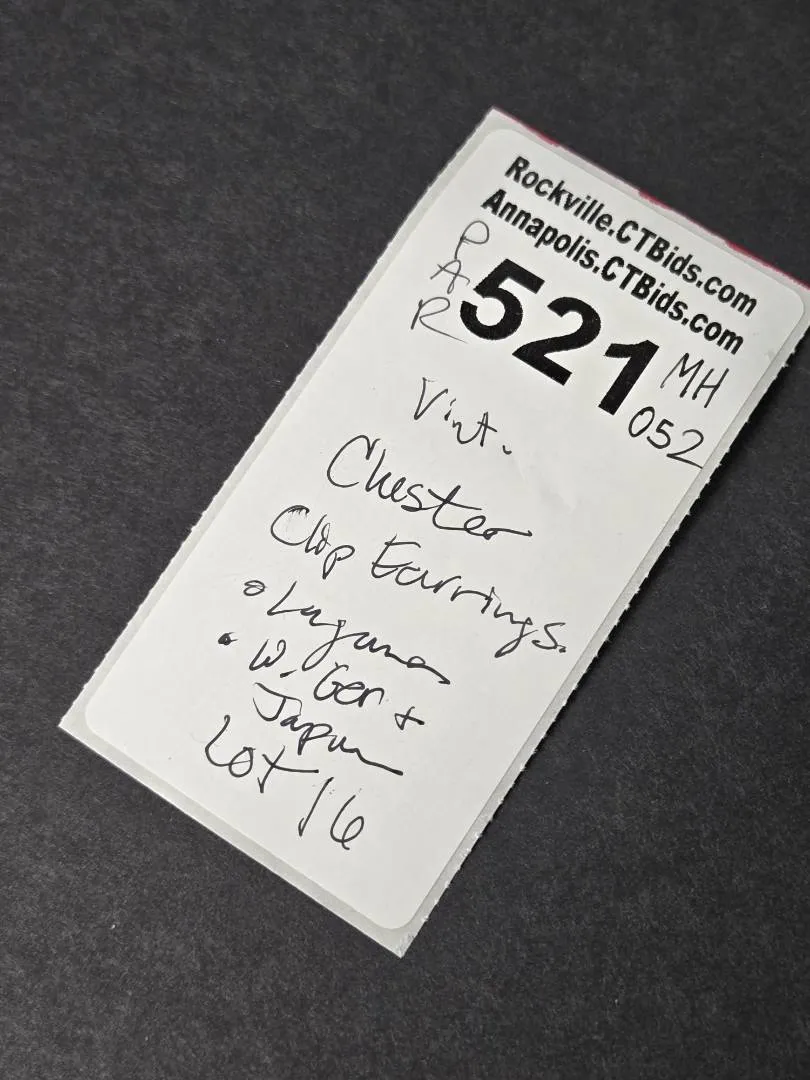 Rockville.CTBids.com
Annapolis.CTBids.com
PAR
521
MH
052
Vint.
Cluster
Clip Earrings.
• Laguna
• W. Ger +
Japan
Lot 16